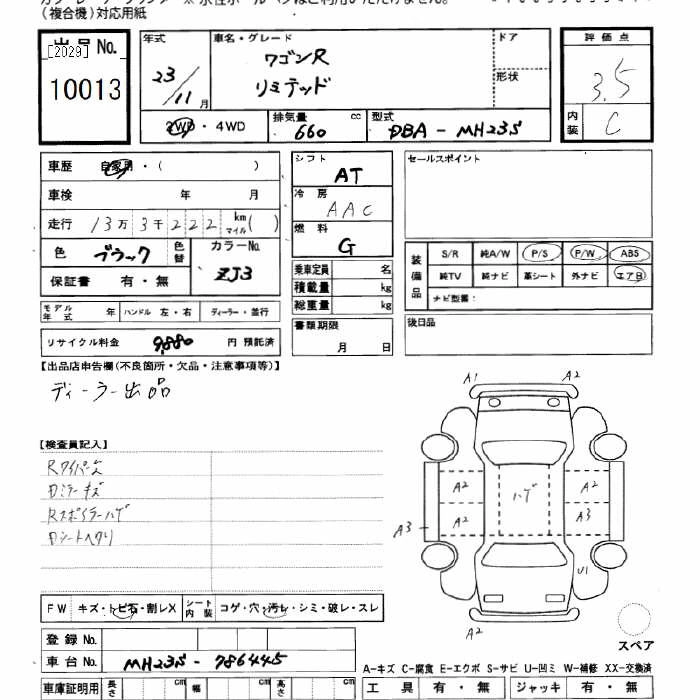 (複合機)対応用紙
出品No.
[2029]
10013
年式 23/11月
車名・グレード ワゴンR リミテッド
ドア
形状
評価点 3.5
内装 C
2WD・4WD
排気量 660 cc
型式 DBA-MH23S
車歴 自家用・( )
車検 年 月
走行 13万3千222 km マイル( )
色 ブラック 色替
カラーNo. ZJ3
保証書 有・無
シフト AT
冷房 AAC
燃料 G
乗車定員 名
積載量 kg
総重量 kg
書類期限 月 日
セールスポイント
装備品 S/R 純A/W P/S P/W ABS
純TV 純ナビ 革シート 外ナビ エアB
ナビ型番:
後日品
モデル年式 年 ハンドル 左・右 ディーラー・並行
リサイクル料金 9,880 円 預託済
【出品店申告欄(不良箇所・欠品・注意事項等)】
ディーラー出品
【検査員記入】
Rワイパー欠
Dミラーキズ
Rスポイラーハゲ
Dシートヘタリ
A1 A2
A2 ハゲ A2
A3 A2 A3
U1
A2
スペア
FW キズ・トビ石・割レX シート内装 コゲ・穴・汚レ・シミ・破レ・スレ
登録No.
車台No. MH23S-786445
A-キズ C-腐食 E-エクボ S-サビ U-凹ミ W-補修 XX-交換済
車庫証明用 長さ cm 幅 cm 高さ cm
工具 有・無 ジャッキ 有・無